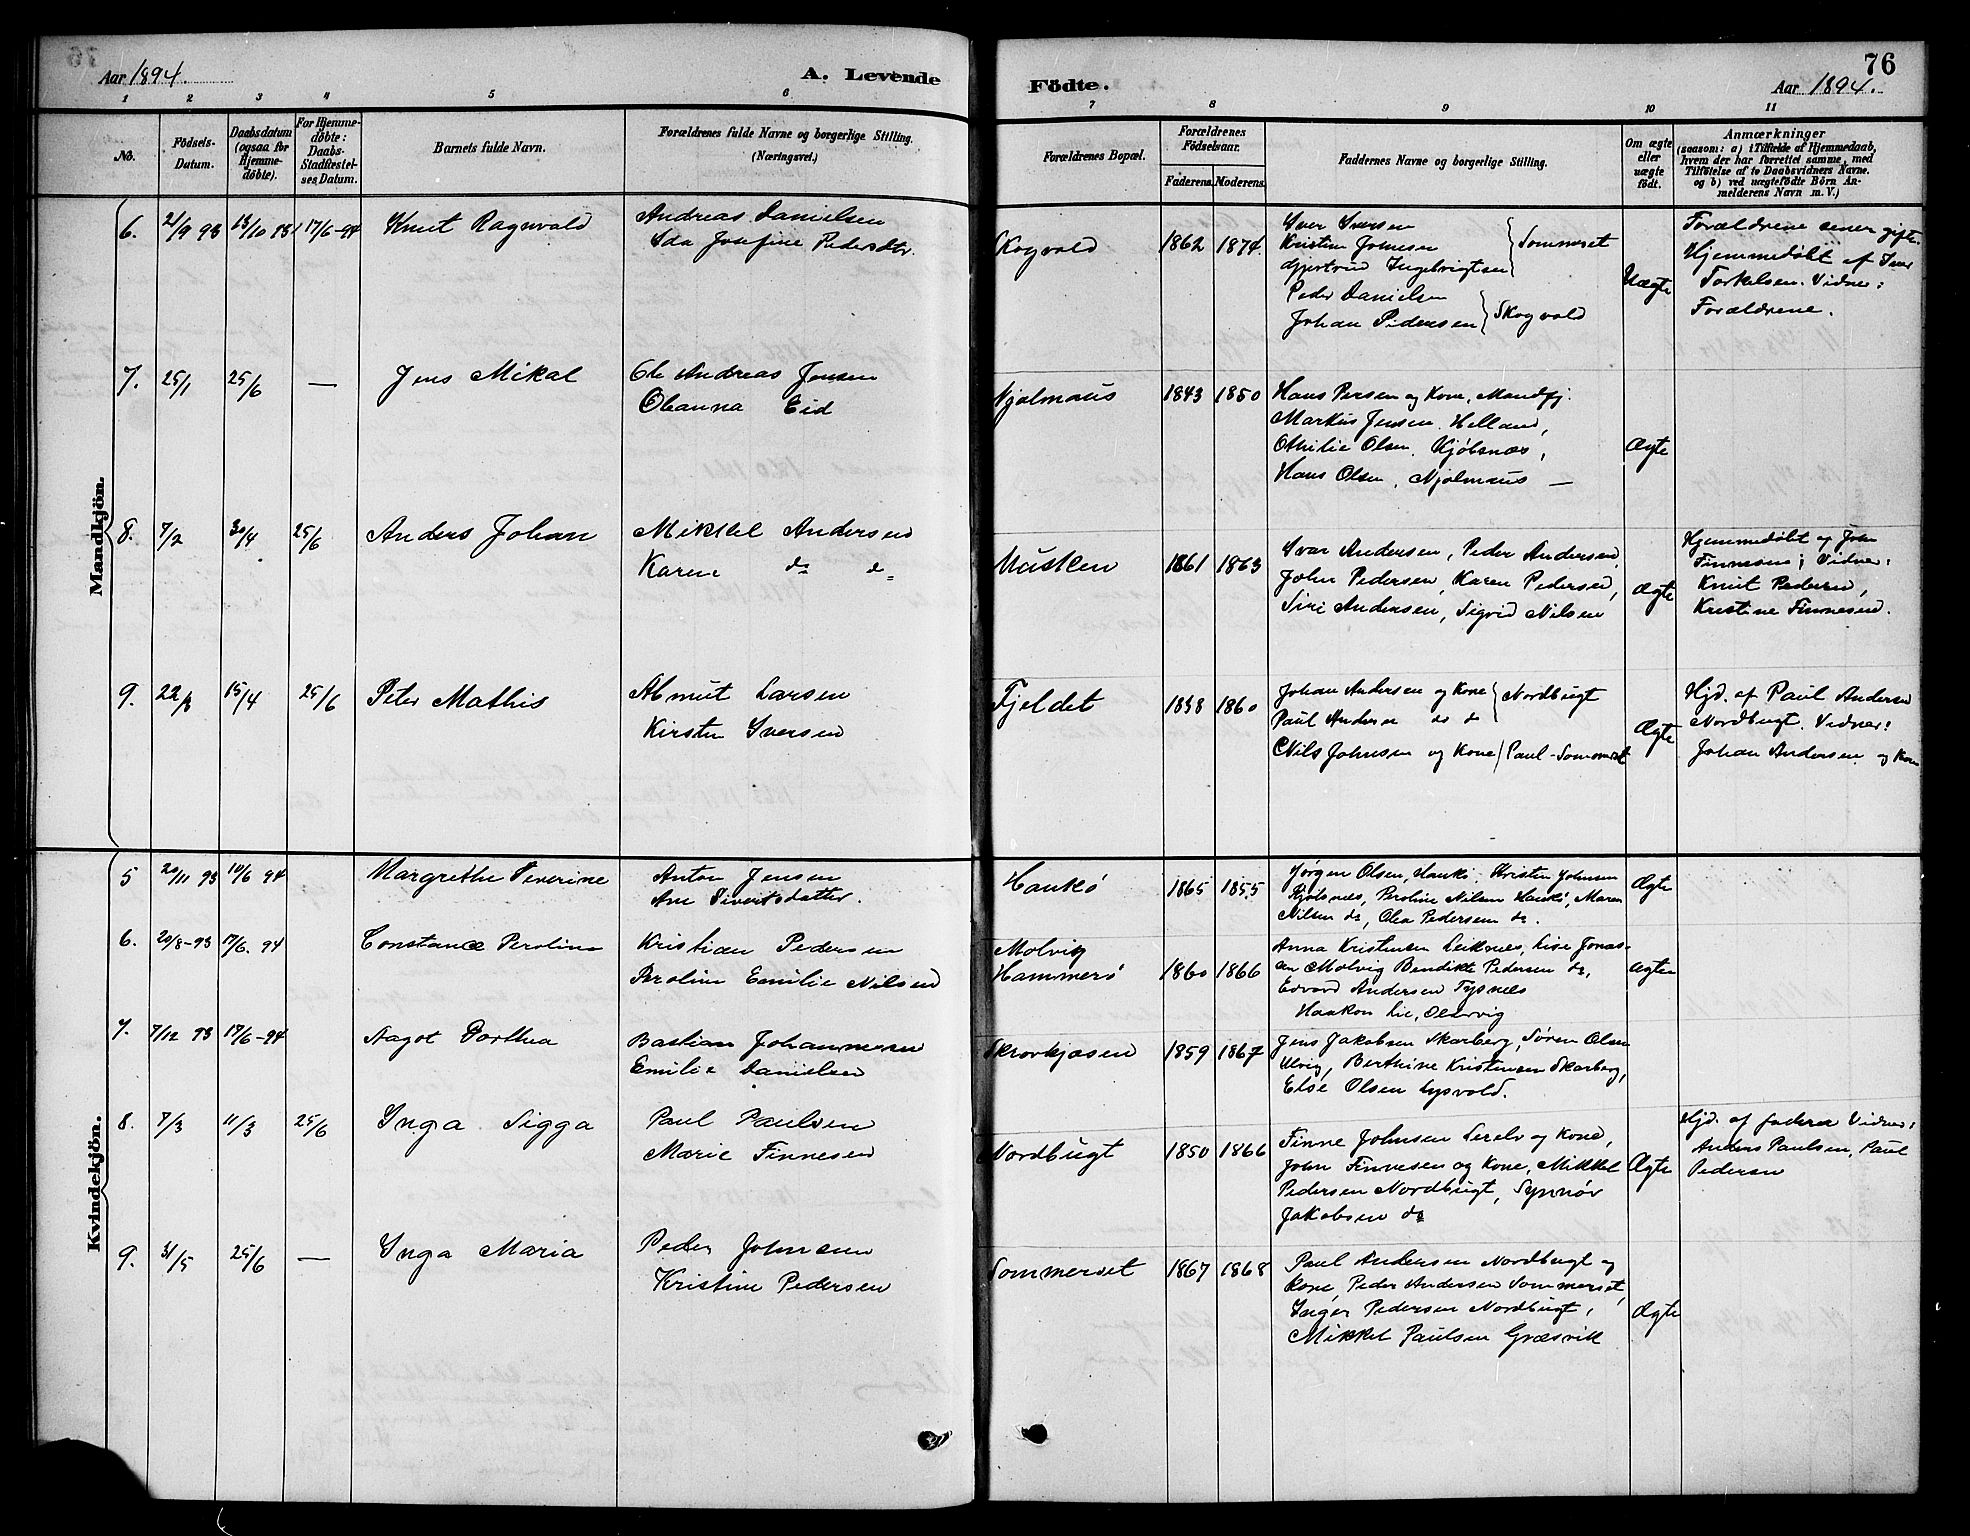 76
Aar 1894.
A. Levende
Fødte.
Aar 1894.
1 2 3 4 5 6 7 8 9 10 11
No.
Födsels-
Datum.
Daabsdatum
(ogsaa for
Hjemme-
döbte).
For Hjemme-
döbte:
Daabs-
Stadfæstel-
ses Datum.
Barnets fulde Navn.
Forældrenes fulde Navne og borgerlige Stilling.
(Næringsvei.)
Forældrenes Bopæl.
Forældrenes
Födselsaar.
Faderens. Moderens.
Faddernes Navne og borgerlige Stilling.
Om ægte
eller
uægte
födt.
Anmærkninger
(saasom: a) i Tilfælde af Hjemmedaab,
hvem der har forrettet samme, med
Tilföielse af to Daabsvidners Navne.
og b) ved uægtefödte Börn An-
melderens Navn m. V.)
Mandkjön.
6. 21/9 93 13/10 93 17/6-94 Knut Ragnvald
Andreas Danielsen
Ida Josefine Pedersdtr.
Skogvold 1862 1874
Iver Iversen
Kristine Johnsen
Gjertrud Ingebrigtsen
Sommerset
Peder Danielsen
Johan Pedersen
Skogvold
Uægte
Forældrene senere gifte.
Hjemmedøbt af Iver
Torkelsen. Vidner:
Forældrene.
7. 25/1 25/6 — Jens Mikal
Ole Andreas Jensen
Oleanna Eid
Njalmaus 1843 1850
Hans Persen og Kone, Mandfj.
Markus Jensen Helland,
Othilie Olsen Kjøbsnæs,
Hans Olsen, Njalmaus —
Ægte
8. 7/2 30/4 25/6 Anders Johan
Mikkel Andersen
Karen do do
Musken 1861 1863
Ivar Andersen, Peder Andersen,
John Pedersen, Karen Pedersen,
Siri Andersen, Sigrid Nilsen
Ægte
Hjemmedøbt af John
Finnesen; Vidner:
Knut Pedersen,
Kristine Finnesen.
9. 22/3 15/4 25/6 Peter Mathis
Amut Larsen
Kirsten Iversen
Fjeldet 1838 1860
Johan Andersen og Kone
Paul Andersen do do
Nordbugt
Nils Johnsen og Kone Paul-Sommerset
Ægte
Hjd. af Paul Andersen
Nordbugt. Vidner:
Johan Andersen og Kone
Kvindekjön.
5 20/11 93 10/6 94 Margrethe Severine
Anton Jensen
Ane Sivertsdatter.
Haukø 1865 1855
Jørgen Olsen, Haukø. Kristen Johnsen
Kjøbsnæs, Peroline Nilsen Haukø, Maren
Nilsen do, Olea Pedersen do.
Ægte
6. 20/8-93 17/6. 94 Constance Peroline
Kristian Pedersen
Peroline Emilie Nilsen
Molvig
Hammerø 1860 1866
Anna Kristensen Leiknes, Lise Jonas-
en Molvig Bendikte Pedersen do,
Edvard Andersen Tysnæs
Haakon Lie,
Ægte
7. 7/12 93 17/6-94 Aagot Dorthea
Bastian Johannesen
Emilie Danielsen
Skrovkjosen 1859 1867
Jens Jakobsen Skarberg, Søren Olsen
Ulvig, Berthine Kristensen Skarberg,
Else Olsen Lysvold.
8. 7/3 11/3 25/6 Inga Sigga
Paul Paulsen
Marie Finnesen
Nordbugt 1850 1866
Finne Johnsen Lerelv og Kone,
John Finnesen og Kone, Mikkel
Pedersen Nordbugt, Synnøv
Jakobsen do
Ægte
Hjd. af faderen Vidner:
Anders Paulsen, Paul
Pedersen
9. 31/5 25/6 — Inga Maria
Peder Johnsen
Kristine Pedersen
Sommerset 1867 1868
Paul Andersen Nordbugt og
Kone, Peder Andersen Sommerset,
Inger Pedersen Nordbugt,
Mikkel Paulsen Græsvik
Ægte